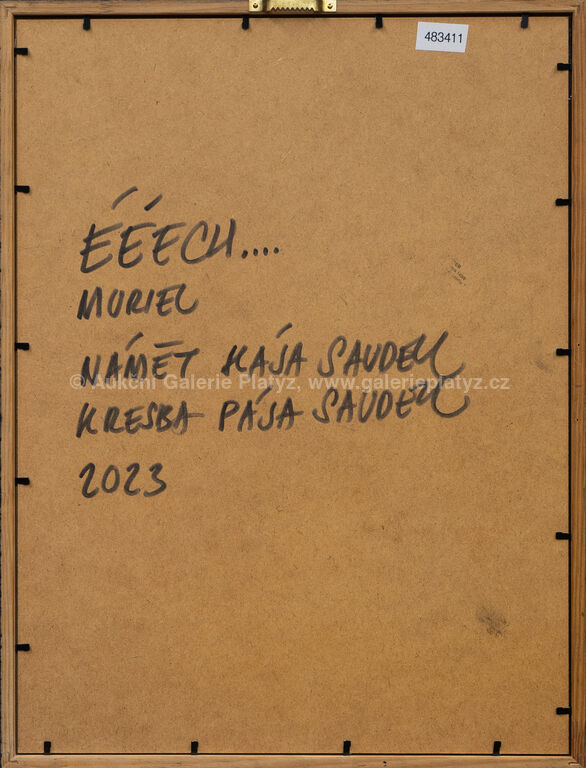 483411
ÉÉECH....
MURIEL
NÁMĚT KÁJA SAUDEK
© Aukční Galerie Platýz, www.galerieplatyz.cz
KRESBA PÁJA SAUDEK
2023